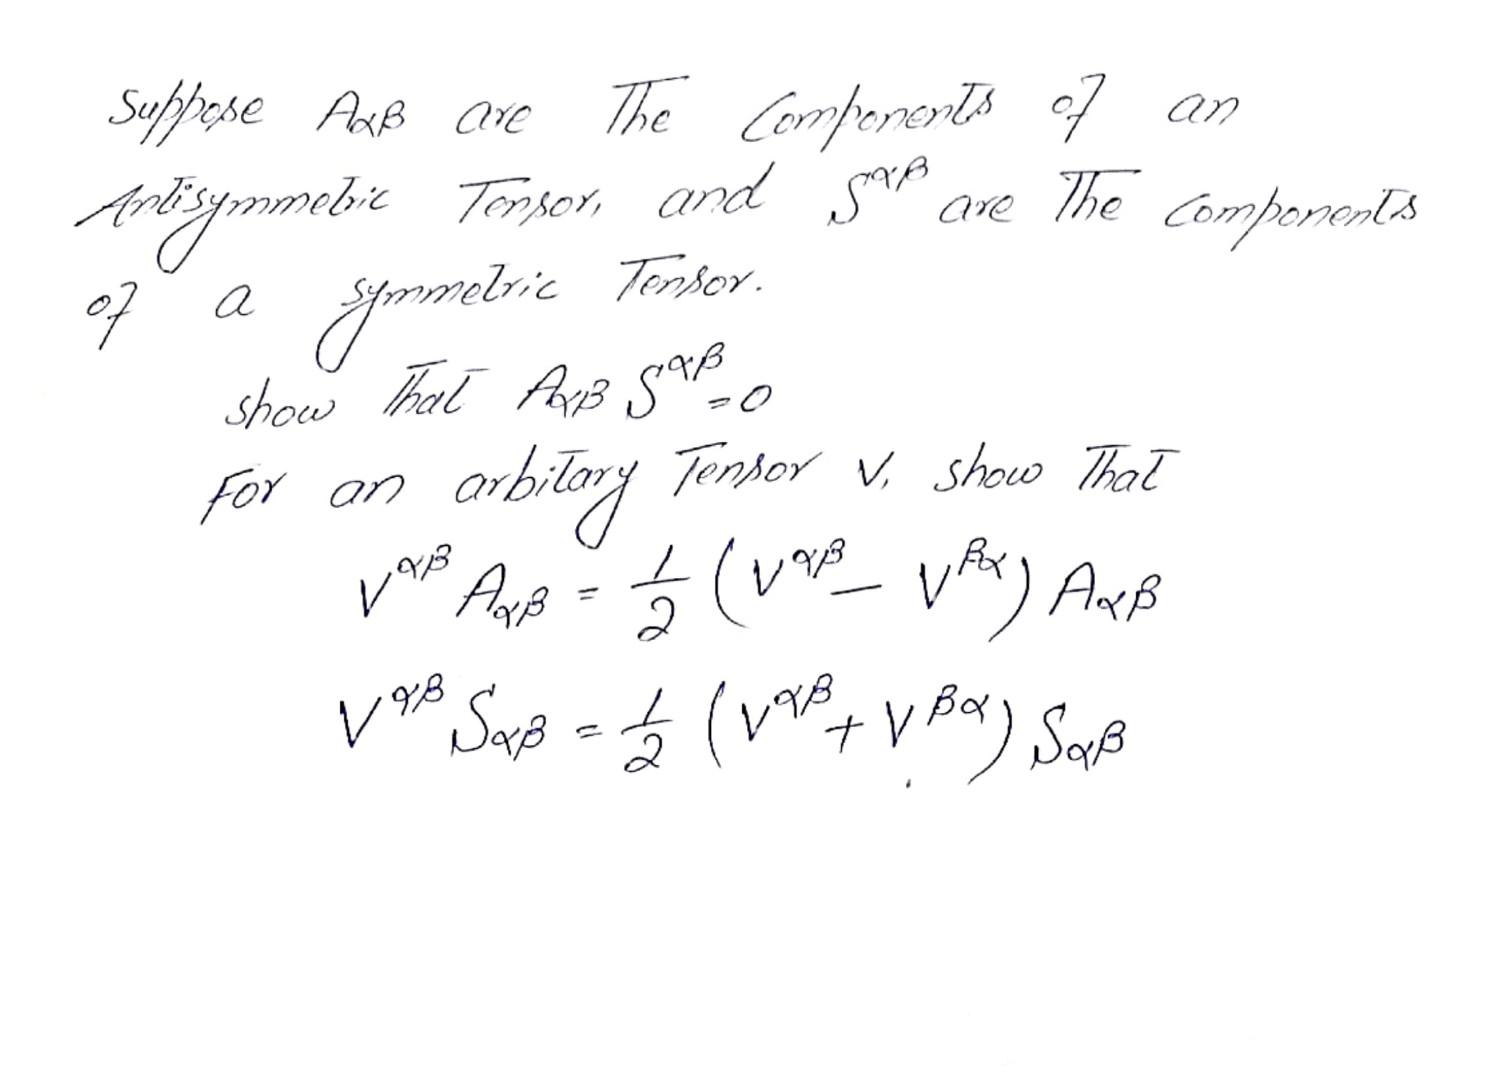 Suppose Aαβ are The Components of an
Antisymmetric Tensor, and S^αβ are The components
of a symmetric Tensor.
show that Aαβ S^αβ = 0
For an arbitary Tensor V, show That
V^αβ Aαβ = 1/2 (V^αβ - V^βα) Aαβ
V^αβ Sαβ = 1/2 (V^αβ + V^βα) Sαβ